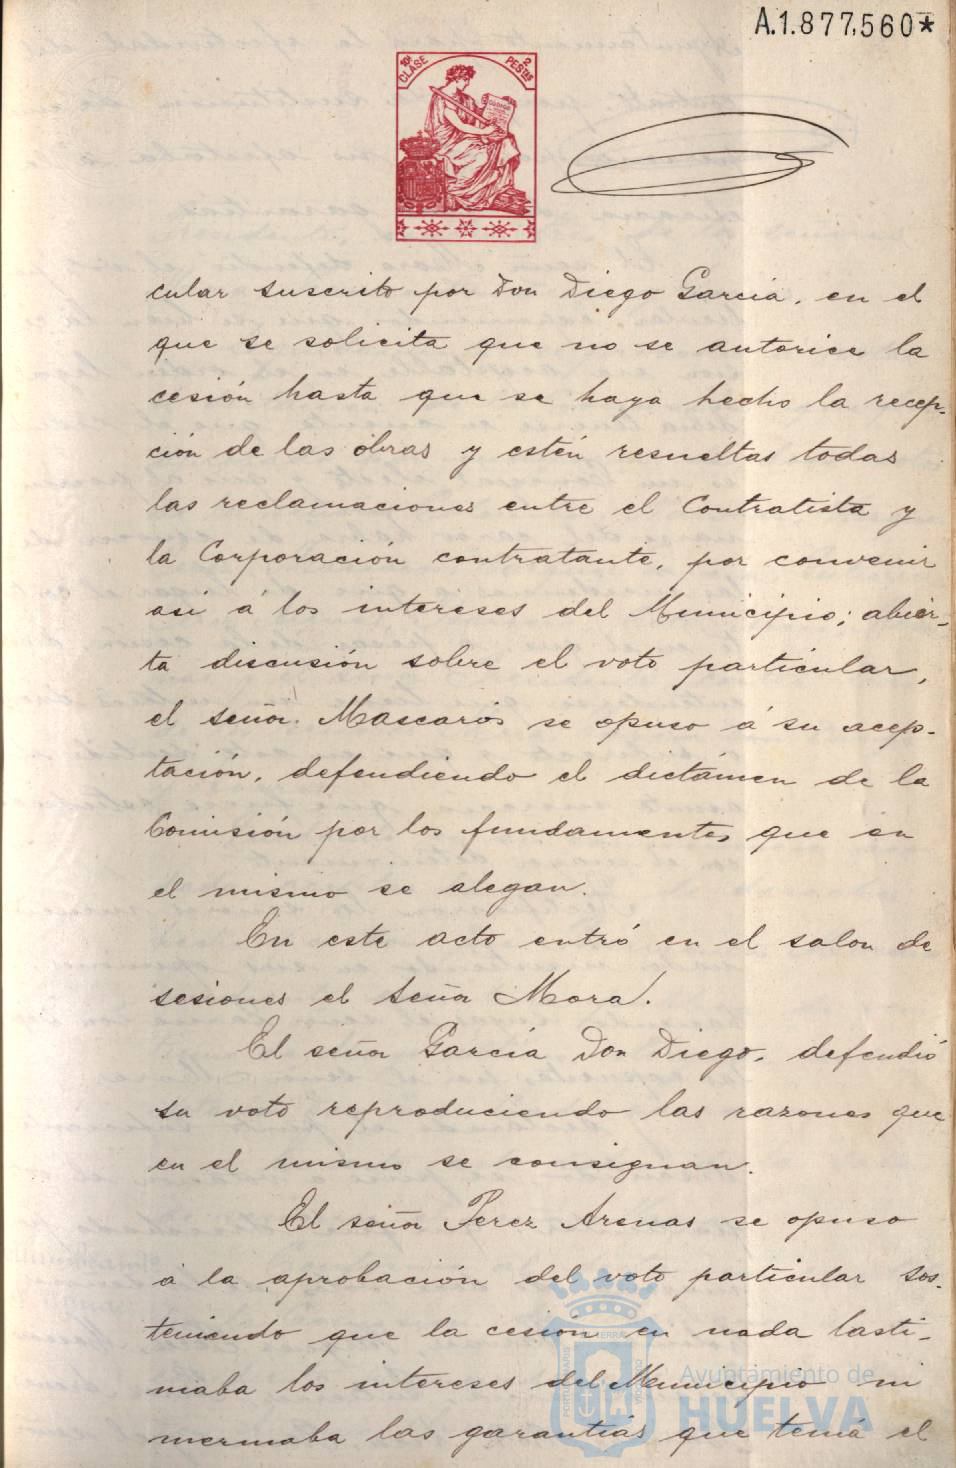 A.1.877,560*
10ª CLASE 2 PESTAS
cular suscrito por Don Diego García, en el
que se solicita que no se autorice la
cesión hasta que se haya hecho la recep-
ción de las obras y estén resueltas todas
las reclamaciones entre el Contratista y
la Corporación contratante, por convenir
asi á los intereses del Municipio; abier-
ta discusión sobre el voto particular,
el señor Mascarós se opuso á su acep-
tación, defendiendo el dictámen de la
Comisión por los fundamentos que en
el mismo se alegan.
En este acto entró en el salon de
sesiones el señor Mora.
El señor García Don Diego, defendió
su voto reproduciendo las razones que
en el mismo se consignan.
El señor Perez Arenas se opuso
á la aprobación del voto particular sos-
teniendo que la cesión en nada lasti-
maba los intereses del Municipio ni
mermaba las garantías que tenia el
Ayuntamiento de
HUELVA